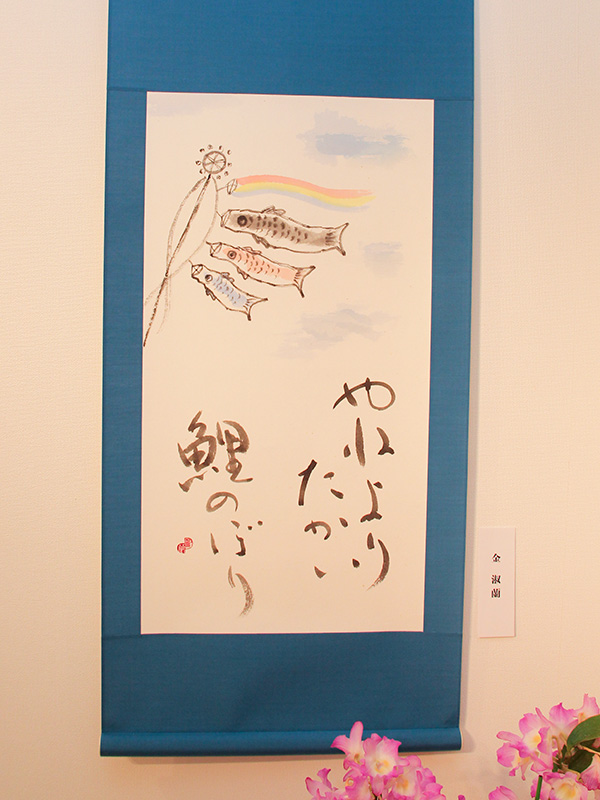 やねより
たかい
鯉のぼり
金 淑蘭